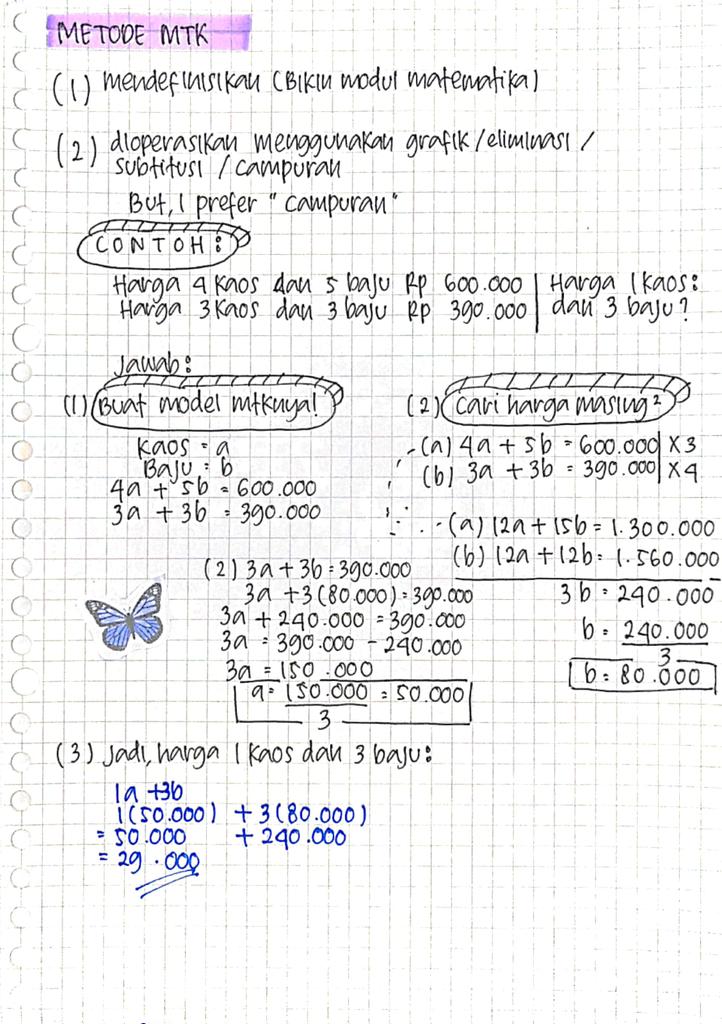 METODE MTK
(1) mendefinisikan (Bikin modul matematika)
(2) dioperasikan menggunakan grafik/eliminasi/
subtitusi/campuran
But, I prefer "campuran"
CONTOH:
Harga 4 kaos dan 5 baju Rp 600.000 | Harga 1 kaos:
Harga 3 kaos dan 3 baju Rp 390.000 | dan 3 baju?
Jawab:
(1) Buat model mtknya!
Kaos = a
Baju = b
4a + 5b = 600.000
3a + 3b = 390.000
(2) Cari harga masing²
(a) 4a + 5b = 600.000 | x3
(b) 3a + 3b = 390.000 | x4
(a) 12a + 15b = 1.300.000
(b) 12a + 12b = 1.560.000
3b = 240.000
b = 240.000
3
b = 80.000
(2) 3a + 3b = 390.000
3a + 3(80.000) = 390.000
3a + 240.000 = 390.000
3a = 390.000 - 240.000
3a = 150.000
a = 150.000 = 50.000
3
(3) Jadi, harga 1 kaos dan 3 baju:
1a + 3b
1(50.000) + 3(80.000)
= 50.000 + 240.000
= 29.000